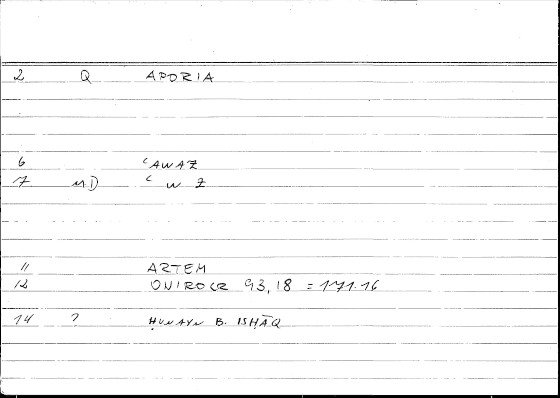 2 Q APORIA
6 ʿAWAZ
7 MD ʿ W Z
11 ARTEM
12 ONIROCR 93,18 = 171.16
14 ? ḤUNAYN B. ISḤĀQ